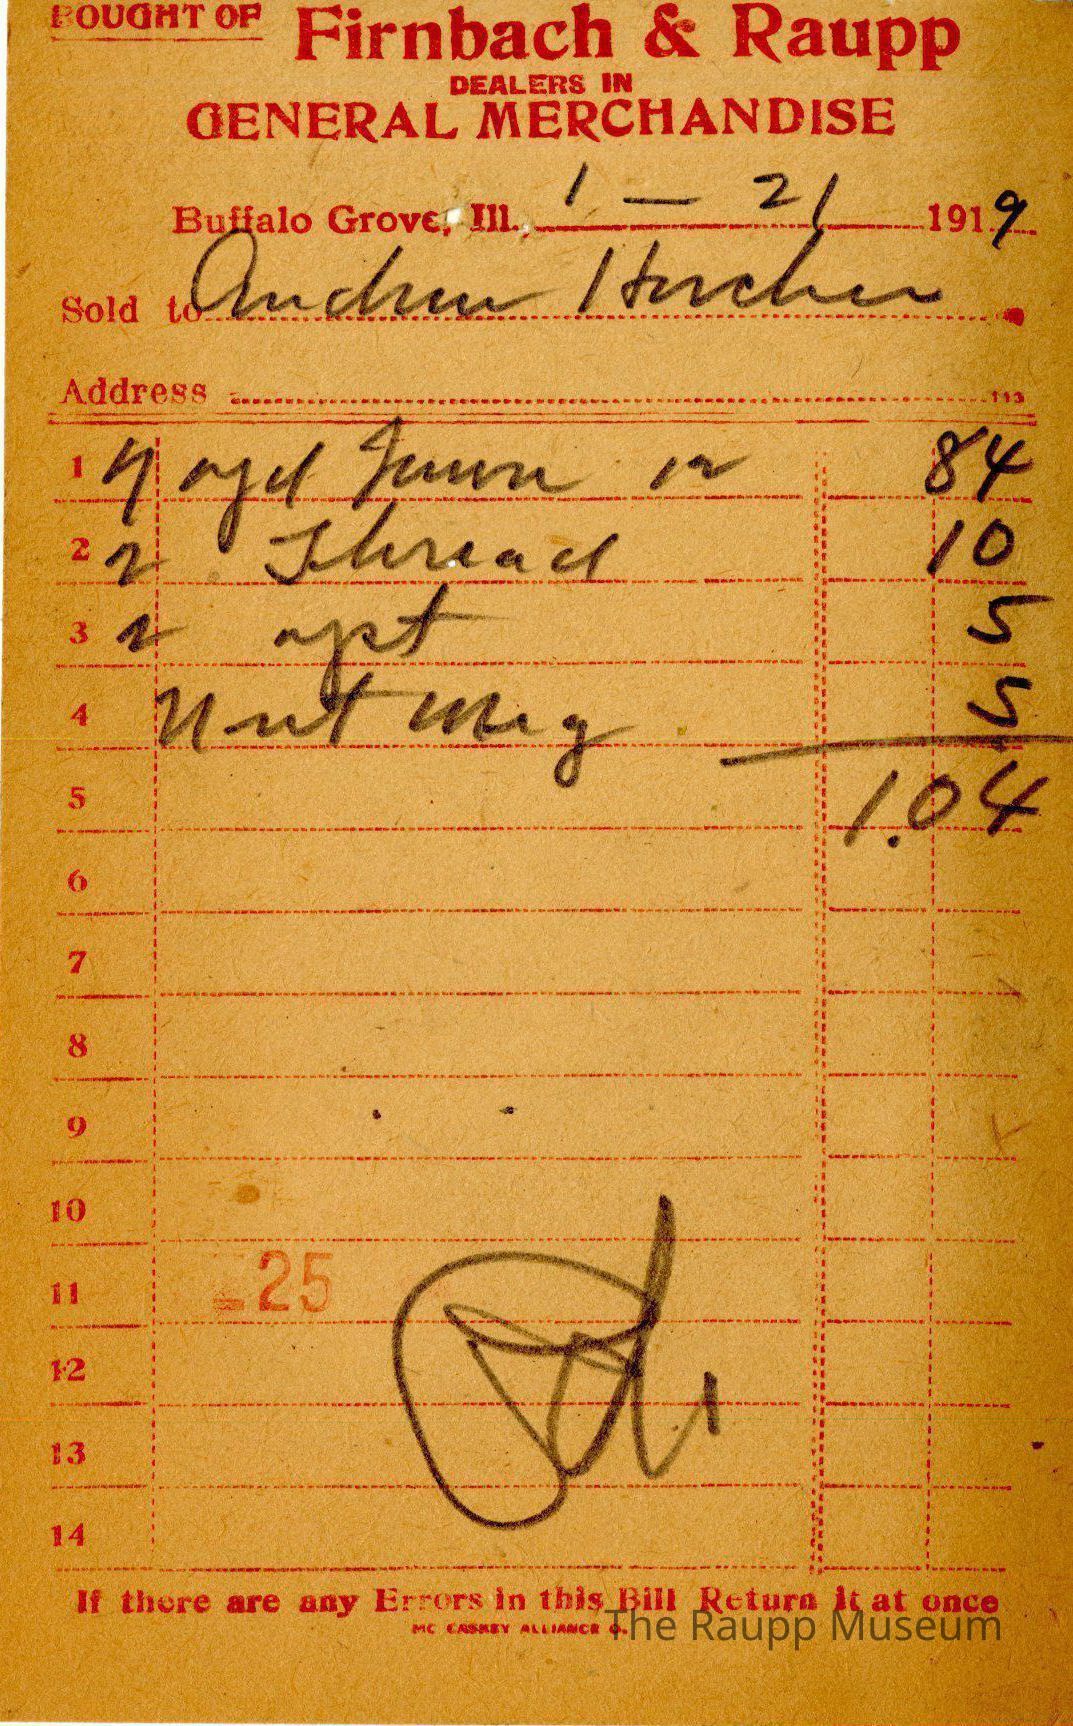 BOUGHT OF Firnbach & Raupp
DEALERS IN
GENERAL MERCHANDISE
Buffalo Grove, Ill., 1 — 21 1919
Sold to Andrew Horcher
Address
1 7 yd 12 84
2 2 Thread 10
3 2 5
4 Nut Meg 5
5 1.04
6
7
8
9
10
11 25
12
13
14
If there are any Errors in this Bill Return it at once
MC CASKEY ALLIANCE O.
The Raupp Museum